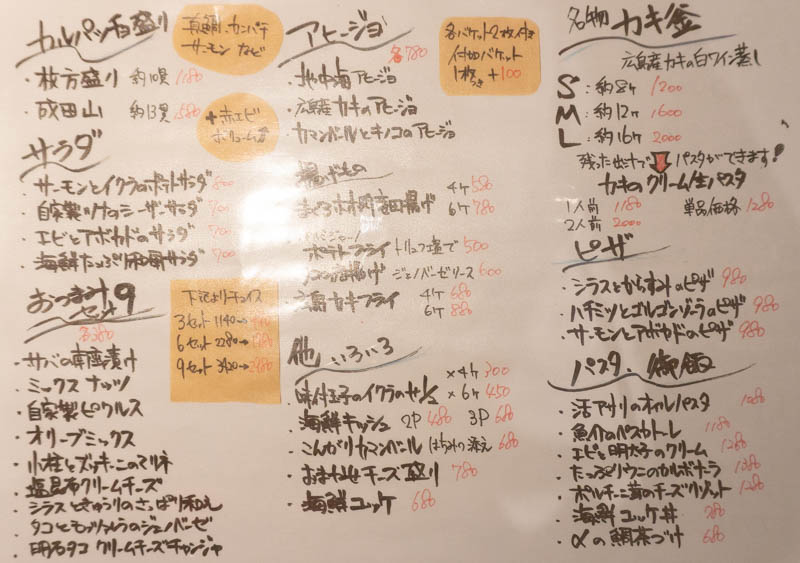 カルパッチョ盛り
真鯛、カンパチ
サーモン など
・枚方盛り 約10貫 1180
・成田山 約13貫 1580
+赤エビ
ボリューム↑
サラダ
・サーモンとイクラのポテトサラダ 800
・自家製ツナのシーザーサラダ 700
・エビとアボカドのサラダ 700
・海鮮たっぷり和風サラダ 700
おつまみ9
セット
各380
下記よりチョイス
3セット 1140→
6セット 2280→
9セット 3420→
・サバの
・ミックスナッツ
・自家製ピクルス
・オリーブミックス
・小柱とズッキーニのマリネ
・塩昆布クリームチーズ
・シラスときゅうりのさっぱり和え
・タコとモッツァレラのジェノベーゼ
・明石タコ クリームチーズチャンジャ
アヒージョ
各780
各バケット2枚付き
付けバケット
1枚 +100
・地中海アヒージョ
・広島産カキのアヒージョ
・カマンベールとキノコのアヒージョ
揚げもの
・まぐろ 竜田揚げ 4ヶ 550 6ヶ 780
・ポテトフライ トリュフ塩で 500
揚げ 600
・広島カキフライ 4ヶ 680
6ヶ 880
他 いろいろ
・味付玉子のイクラのせ ×4ヶ 300
×6ヶ 450
・海鮮キッシュ 2P 480 3P 680
・こんがりカマンベール はちみつ添え 680
・おまかせチーズ盛り 780
・海鮮ユッケ 680
名物 カキ釜
広島産カキの白ワイン蒸し
S:約8ヶ 1200
M:約12ヶ 1600
L:約16ヶ 2000
残った出汁で パスタができます!
カキのクリーム生パスタ
1人前 1180 単品価格 1280
2人前 2000
ピザ
・シラスとからすみのピザ 980
・ハチミツとゴルゴンゾーラのピザ 980
・サーモンとアボカドのピザ 980
パスタ・御飯
・活アサリのオイルパスタ 1280
・魚介のペスカトーレ 1180
・エビと明太子のクリーム 1280
・たっぷりウニのカルボナーラ 1380
・ポルチーニ茸のチーズリゾット 1280
・海鮮ユッケ丼 780
・〆の鯛茶づけ 680